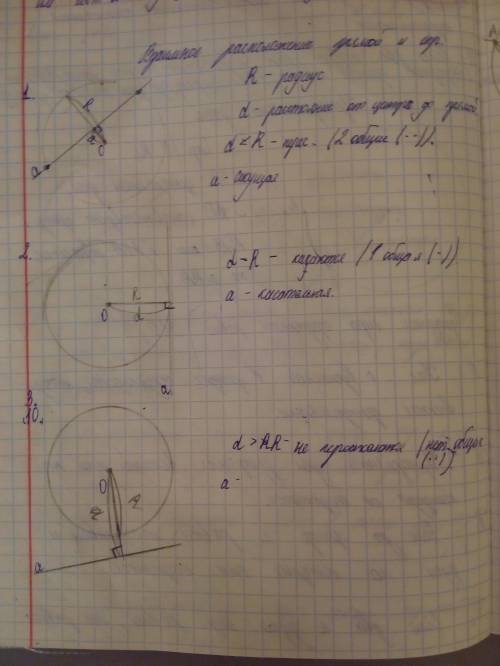 Взаимное расположение прямой и окр.
1.
R
d
O
a
R - радиус
d - расстояние от центра до прямой
d < R - перес. (2 общие (··)).
a - секущая
2.
R
O
d
a
d = R - касаются (1 общая (·))
a - касательная.
3.
10.
O
a
d > R - не пересекаются (нет общих (··))
a -